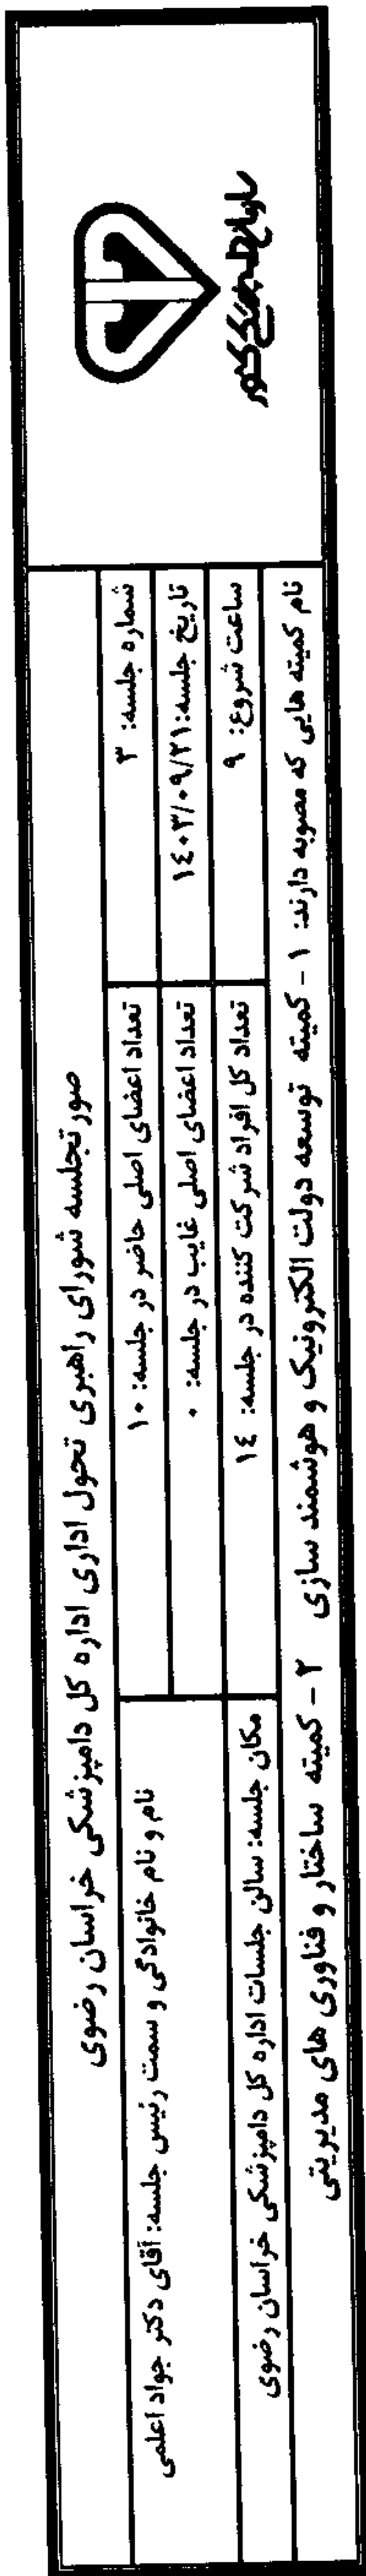 سازمان دامپزشکی کشور
صورتجلسه شورای راهبری تحول اداری اداره کل دامپزشکی خراسان رضوی
شماره جلسه: ۳
تعداد اعضای اصلی حاضر در جلسه: ۱۰
نام و نام خانوادگی و سمت رئیس جلسه: آقای دکتر جواد اعلمی
تاریخ جلسه: ۱٤۰۳/۰۹/۲۱
تعداد اعضای اصلی غایب در جلسه: ۰
ساعت شروع: ۹
تعداد کل افراد شرکت کننده در جلسه: ۱٤
مکان جلسه: سالن جلسات اداره کل دامپزشکی خراسان رضوی
نام کمیته هایی که مصوبه دارند: ۱ - کمیته توسعه دولت الکترونیک و هوشمند سازی ۲ - کمیته ساختار و فناوری های مدیریتی